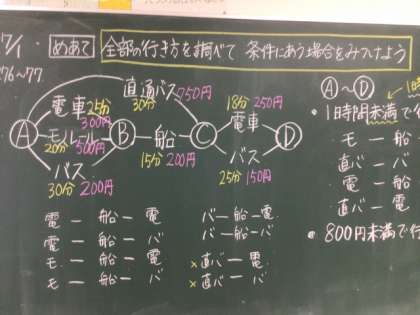 7/1 めあて 全部の行き方を調べて 条件にあう場合をみつけよう
P76~77
直通バス
30分 750円
電車 25分
300円
18分 250円
電車
A モノレール B 船 C D
20分 500円
15分 200円
バス
30分 200円
バス
25分 150円
電ー船ー電
電ー船ーバ
モー船ーバ
モー船ーバ
バー船ー電
バー船ーバ
×直バー電
×直バーバ
A~D
・1時間未満で
モ ー 船
直バ ー バ
電 ー 船
直バ ー 電
・800円未満で行